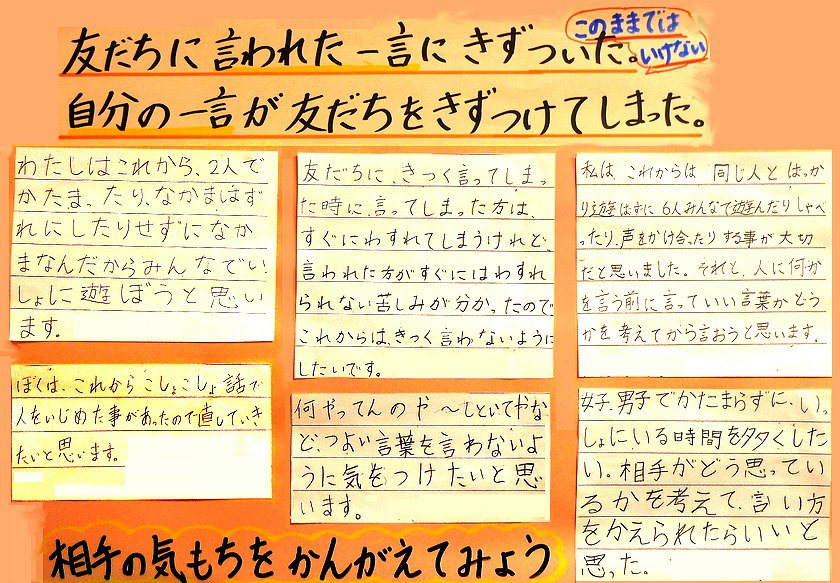 友だちに言われた一言にきずついた。
このままでは
いけない
自分の一言が友だちをきずつけてしまった。
わたしはこれから、2人で
かたまったり、なかまはず
れにしたりせずになか
まなんだからみんなでいっ
しょに遊ぼうと思い
ます。
友だちに、きつく言ってしまっ
た時に、言ってしまった方は、
すぐにわすれてしまうけれど、
言われた方がすぐにはわすれ
られない苦しみが分かったので
これからは、きつく言わないように
したいです。
私は、これからは 同じ人とばっか
り遊ばずに6人みんなで遊んだりしゃべ
ったり、声をかけ合ったりする事が大切
だと思いました。それと、人に何か
を言う前に言っていい言葉かどう
かを考えてから言おうと思います。
ぼくは、これからこしょこしょ話で
人をいじめた事があったので直していき
たいと思います。
何やってんのや〜しといてやな
ど、つよい言葉を言わないよ
うに気をつけたいと思
います。
女子、男子でかたまらずに、いっ
しょにいる時間を多くした
い。相手がどう思ってい
るかを考えて、言い方
をかえられたらいいと
思った。
相手の気もちをかんがえてみよう